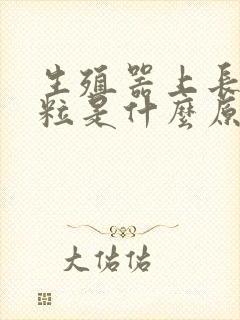 生殖器上長
粒是什麼原
大佑佑